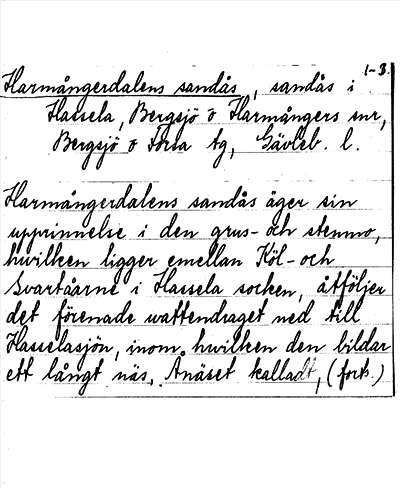 1-3.
Harmångerdalens sandås, sandås i
Hassela, Bergsjö o Harmångers snr,
Bergsjö o Forsa tg, Gävleb. l.
Harmångerdalens sandås äger sin
upprinnelse i den grus- och stenmo,
hwilken ligger emellan Köl- och
Svartåarne i Hassela socken, åtföljer
det förenade wattendraget ned till
Hasselasjön, inom hwilken den bildar
ett långt näs, Anäset kalladt, (forts.)